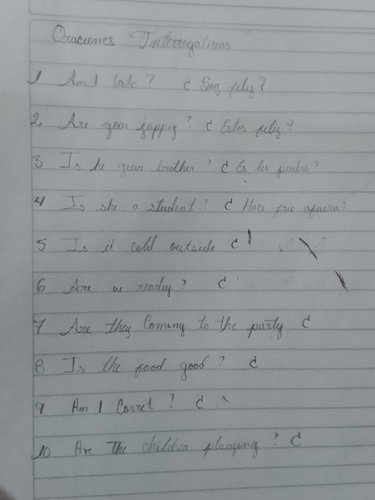 Oraciones Interrogativas
1 Am I late? ¿ Soy feliz?
2 Are you happy? ¿ Estas feliz?
3 Is he your brother? ¿ Es tu padre?
4 Is she a student? ¿ Hace frio afuera?
5 Is it cold outside ¿
6 Are we ready? ¿
7 Are they Coming to the party ¿
8 Is the food good? ¿
9 Am I Corret? ¿
10 Are The children playing? ¿